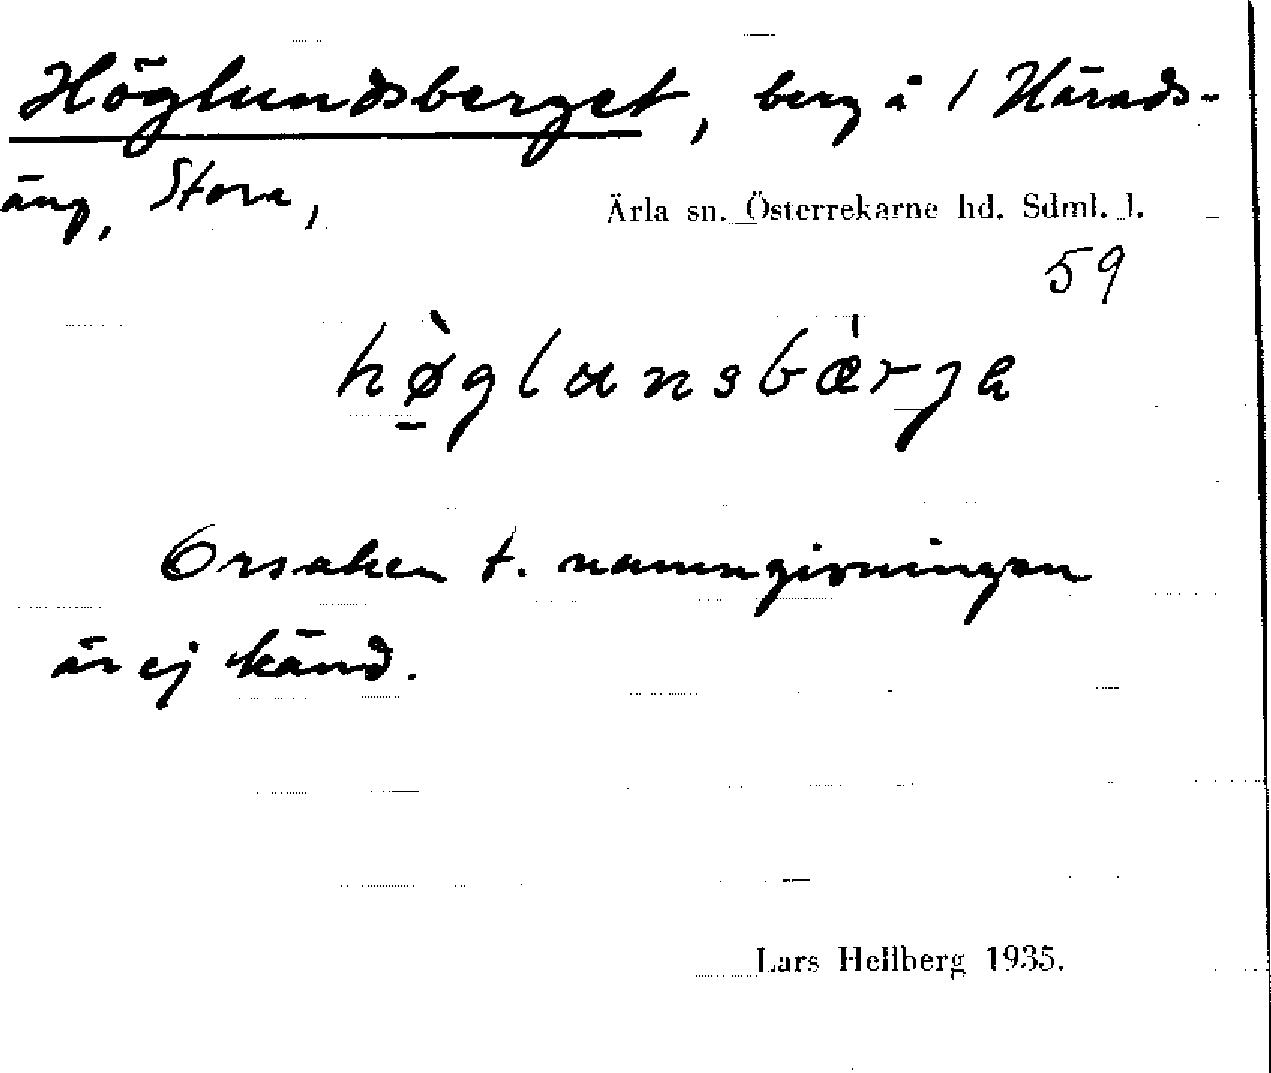 Höglundsberget, berg å 1 Härads-
äng, Stora,
Ärla sn. Österrekarne hd. Sdml. l.
59
hø̀glunsbæ̀rja
Orsaken t. namngivningen
är ej känd.
Lars Hellberg 1935.